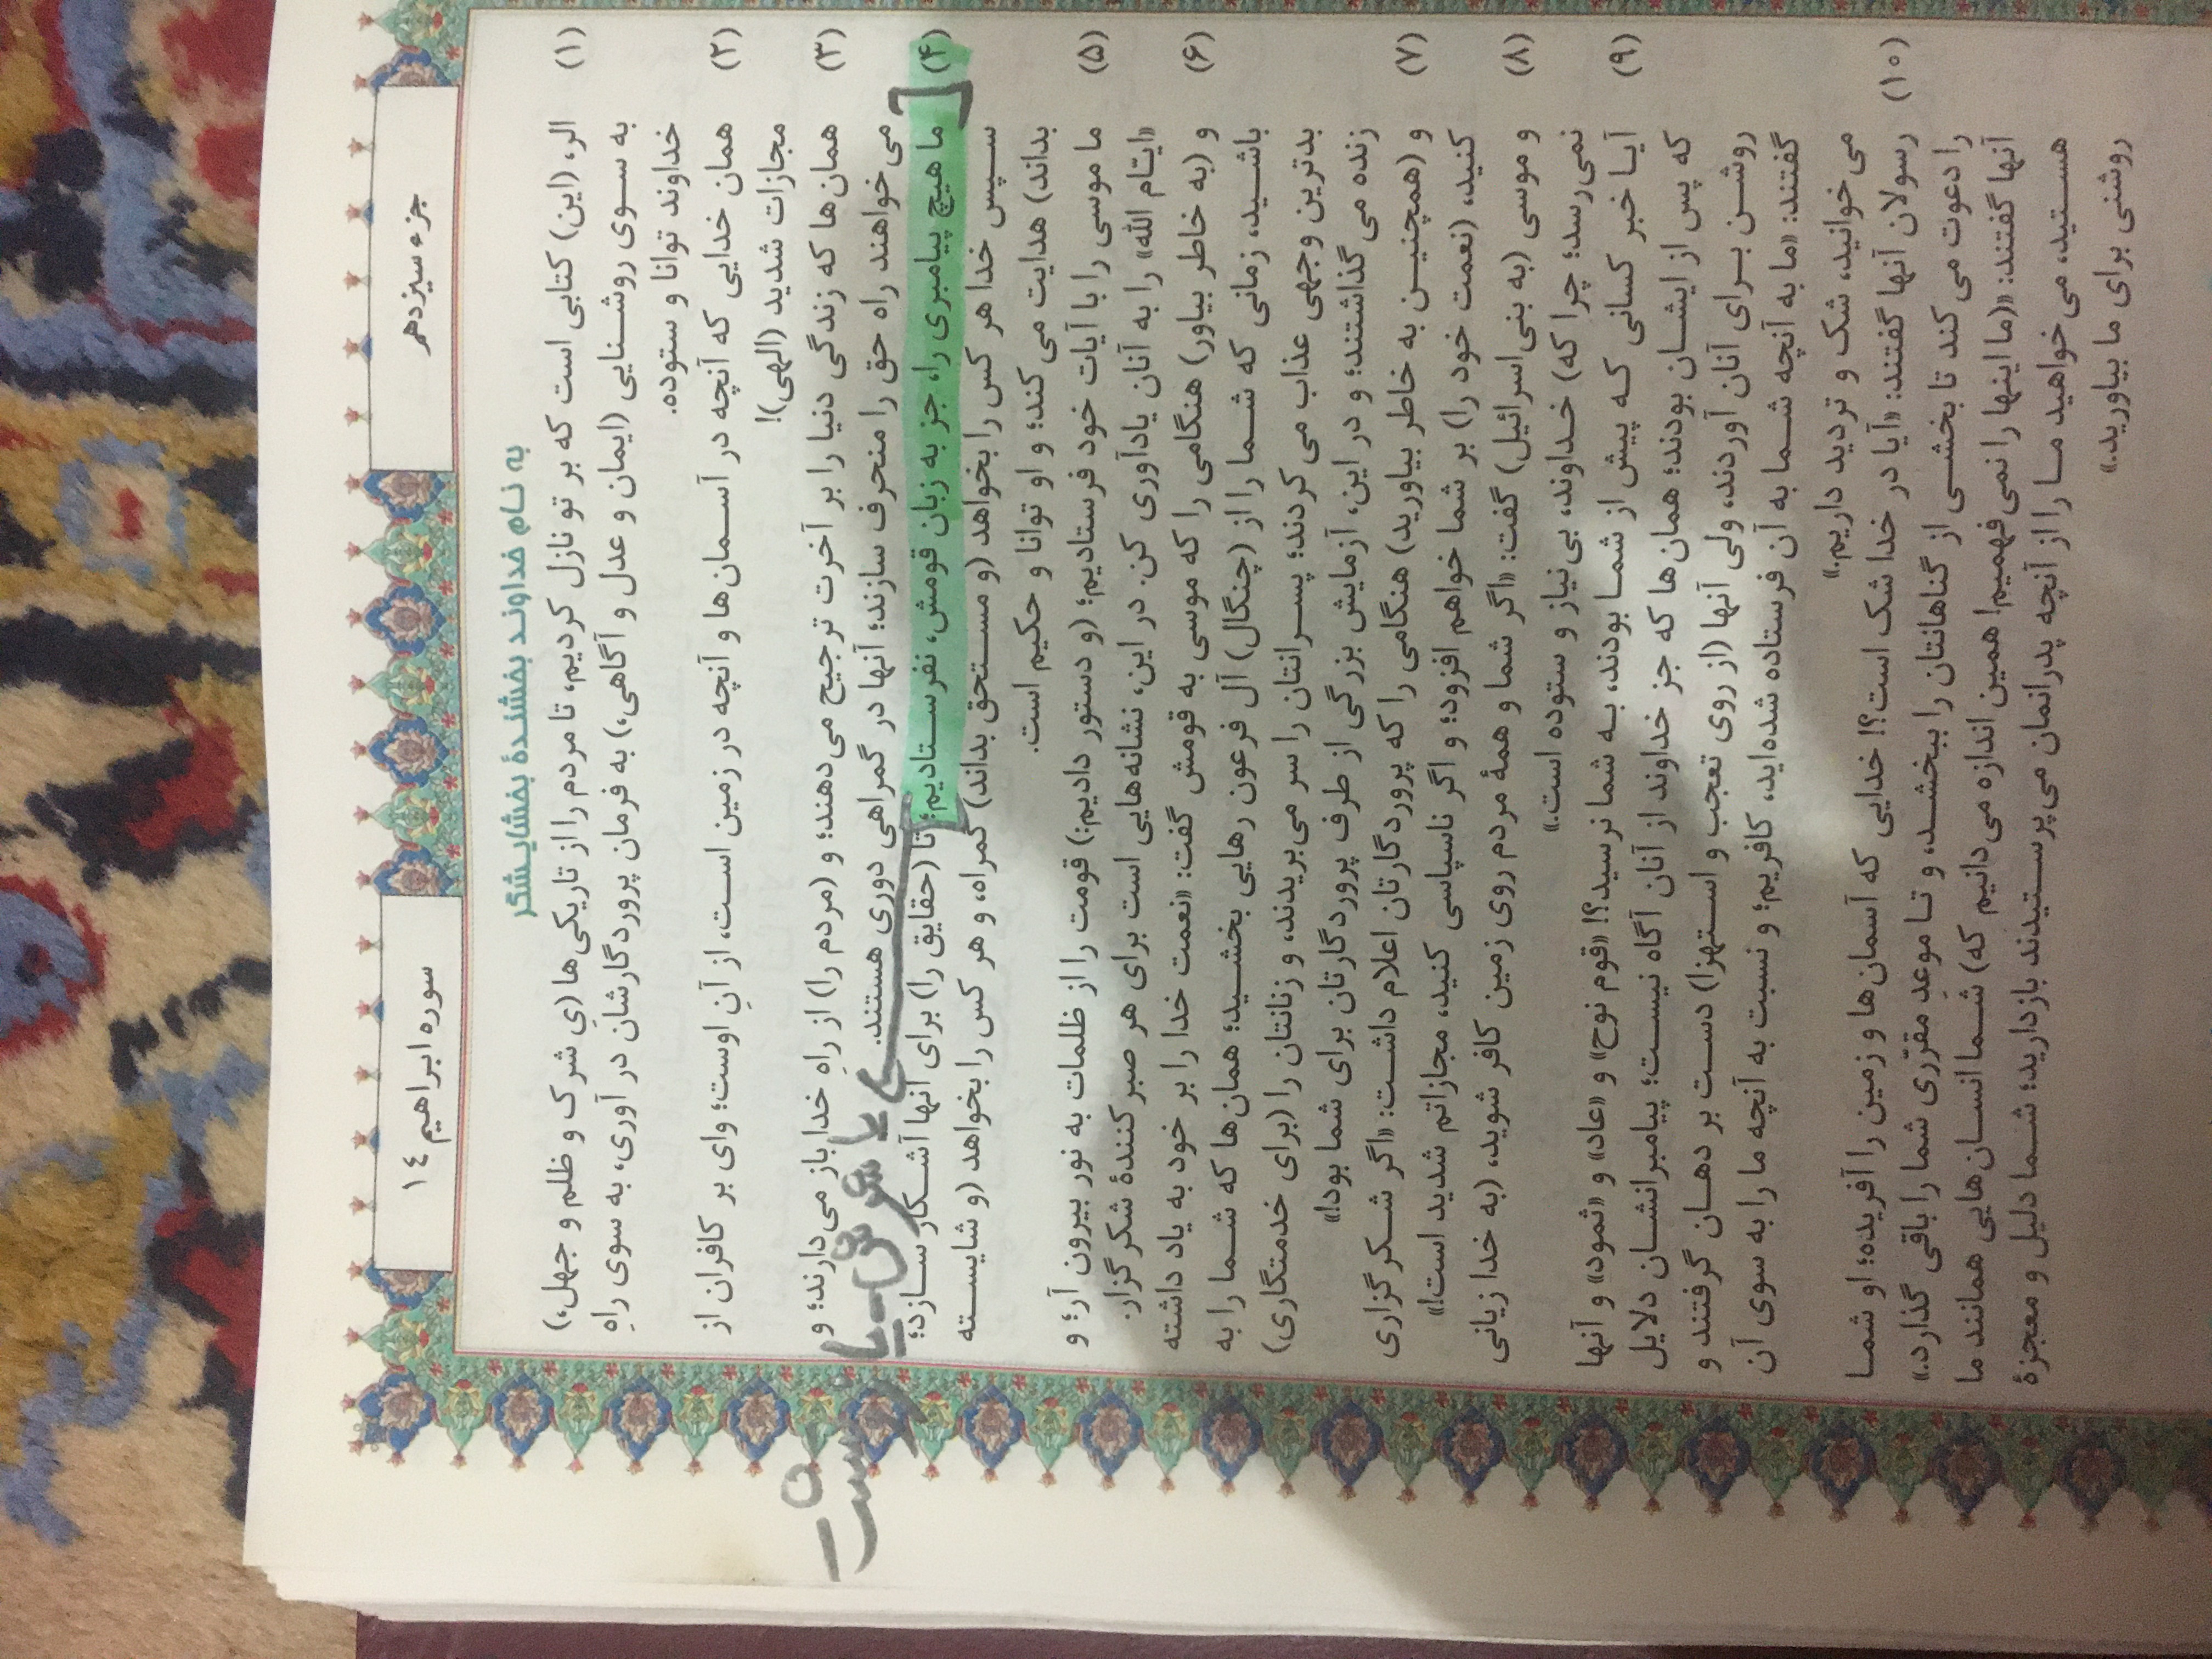 جزء سیزدهم
سوره ابراهیم ١٤
به نام خداوند بخشندهٔ بخشایشگر
(۱) الر، (این) کتابی است که بر تو نازل کردیم، تا مردم را از تاریکی‌ها (ی شرک و ظلم و جهل،)
به سوی روشنایی (ایمان و عدل و آگاهی،) به فرمان پروردگارشان در آوری، به سوی راهِ
خداوند توانا و ستوده.
(۲) همان خدایی که آنچه در آسمان‌ها و آنچه در زمین است، از آنِ اوست؛ وای بر کافران از
مجازات شدید (الهی)!
(۳) همان‌ها که زندگی دنیا را بر آخرت ترجیح می‌دهند؛ و (مردم را) از راهِ خدا باز می‌دارند؛ و
می‌خواهند راه حق را منحرف سازند؛ آنها در گمراهی دوری هستند.
(۴) ما هیچ پیامبری را، جز به زبان قومش، نفرستادیم؛ تا (حقایق را) برای آنها آشکار سازد؛
سپس خدا هر کس را بخواهد (و مستحق بداند) گمراه، و هر کس را بخواهد (و شایسته
بداند) هدایت می‌کند؛ و او توانا و حکیم است.
(۵) ما موسی را با آیات خود فرستادیم؛ (و دستور دادیم:) قومت را از ظلمات به نور بیرون آر؛ و
«ایّام الله» را به آنان یادآوری کن. در این، نشانه‌هایی است برای هر صبر کنندهٔ شکرگزار.
(۶) و (به خاطر بیاور) هنگامی را که موسی به قومش گفت: «نعمت خدا را بر خود به یاد داشته
باشید، زمانی که شما را از (چنگال) آل فرعون رهایی بخشید؛ همان‌ها که شما را به
بدترین وجهی عذاب می‌کردند؛ پسرانتان را سر می‌بریدند، و زنانتان را (برای خدمتگاری)
زنده می‌گذاشتند؛ و در این، آزمایش بزرگی از طرف پروردگارتان برای شما بود!»
(۷) و (همچنین به خاطر بیاورید) هنگامی را که پروردگارتان اعلام داشت: «اگر شکرگزاری
کنید، (نعمت خود را) بر شما خواهم افزود؛ و اگر ناسپاسی کنید، مجازاتم شدید است!»
(۸) و موسی (به بنی‌اسرائیل) گفت: «اگر شما و همهٔ مردم روی زمین کافر شوید، (به خدا زیانی
نمی‌رسد؛ چرا که) خداوند، بی‌نیاز و ستوده است.»
(۹) آیا خبر کسانی که پیش از شما بودند، به شما نرسید؟! «قوم نوح» و «عاد» و «ثمود» و آنها
که پس از ایشان بودند؛ همان‌ها که جز خداوند از آنان آگاه نیست؛ پیامبرانشان دلایل
روشن برای آنان آوردند، ولی آنها (از روی تعجب و استهزا) دست بر دهان گرفتند و
گفتند: «ما به آنچه شما به آن فرستاده شده‌اید، کافریم؛ و نسبت به آنچه ما را به سوی آن
می‌خوانید، شک و تردید داریم.»
(۱۰) رسولان آنها گفتند: «آیا در خدا شک است؟! خدایی که آسمان‌ها و زمین را آفریده؛ او شما
را دعوت می‌کند تا بخشی از گناهانتان را ببخشد، و تا موعدِ مقرّری شما را باقی گذارد.»
آنها گفتند: «(ما اینها را نمی‌فهمیم! همین اندازه می‌دانیم که) شما انسان‌هایی همانند ما
هستید، می‌خواهید ما را از آنچه پدرانمان می‌پرستیدند بازدارید؛ شما دلیل و معجزهٔ
روشنی برای ما بیاورید.»